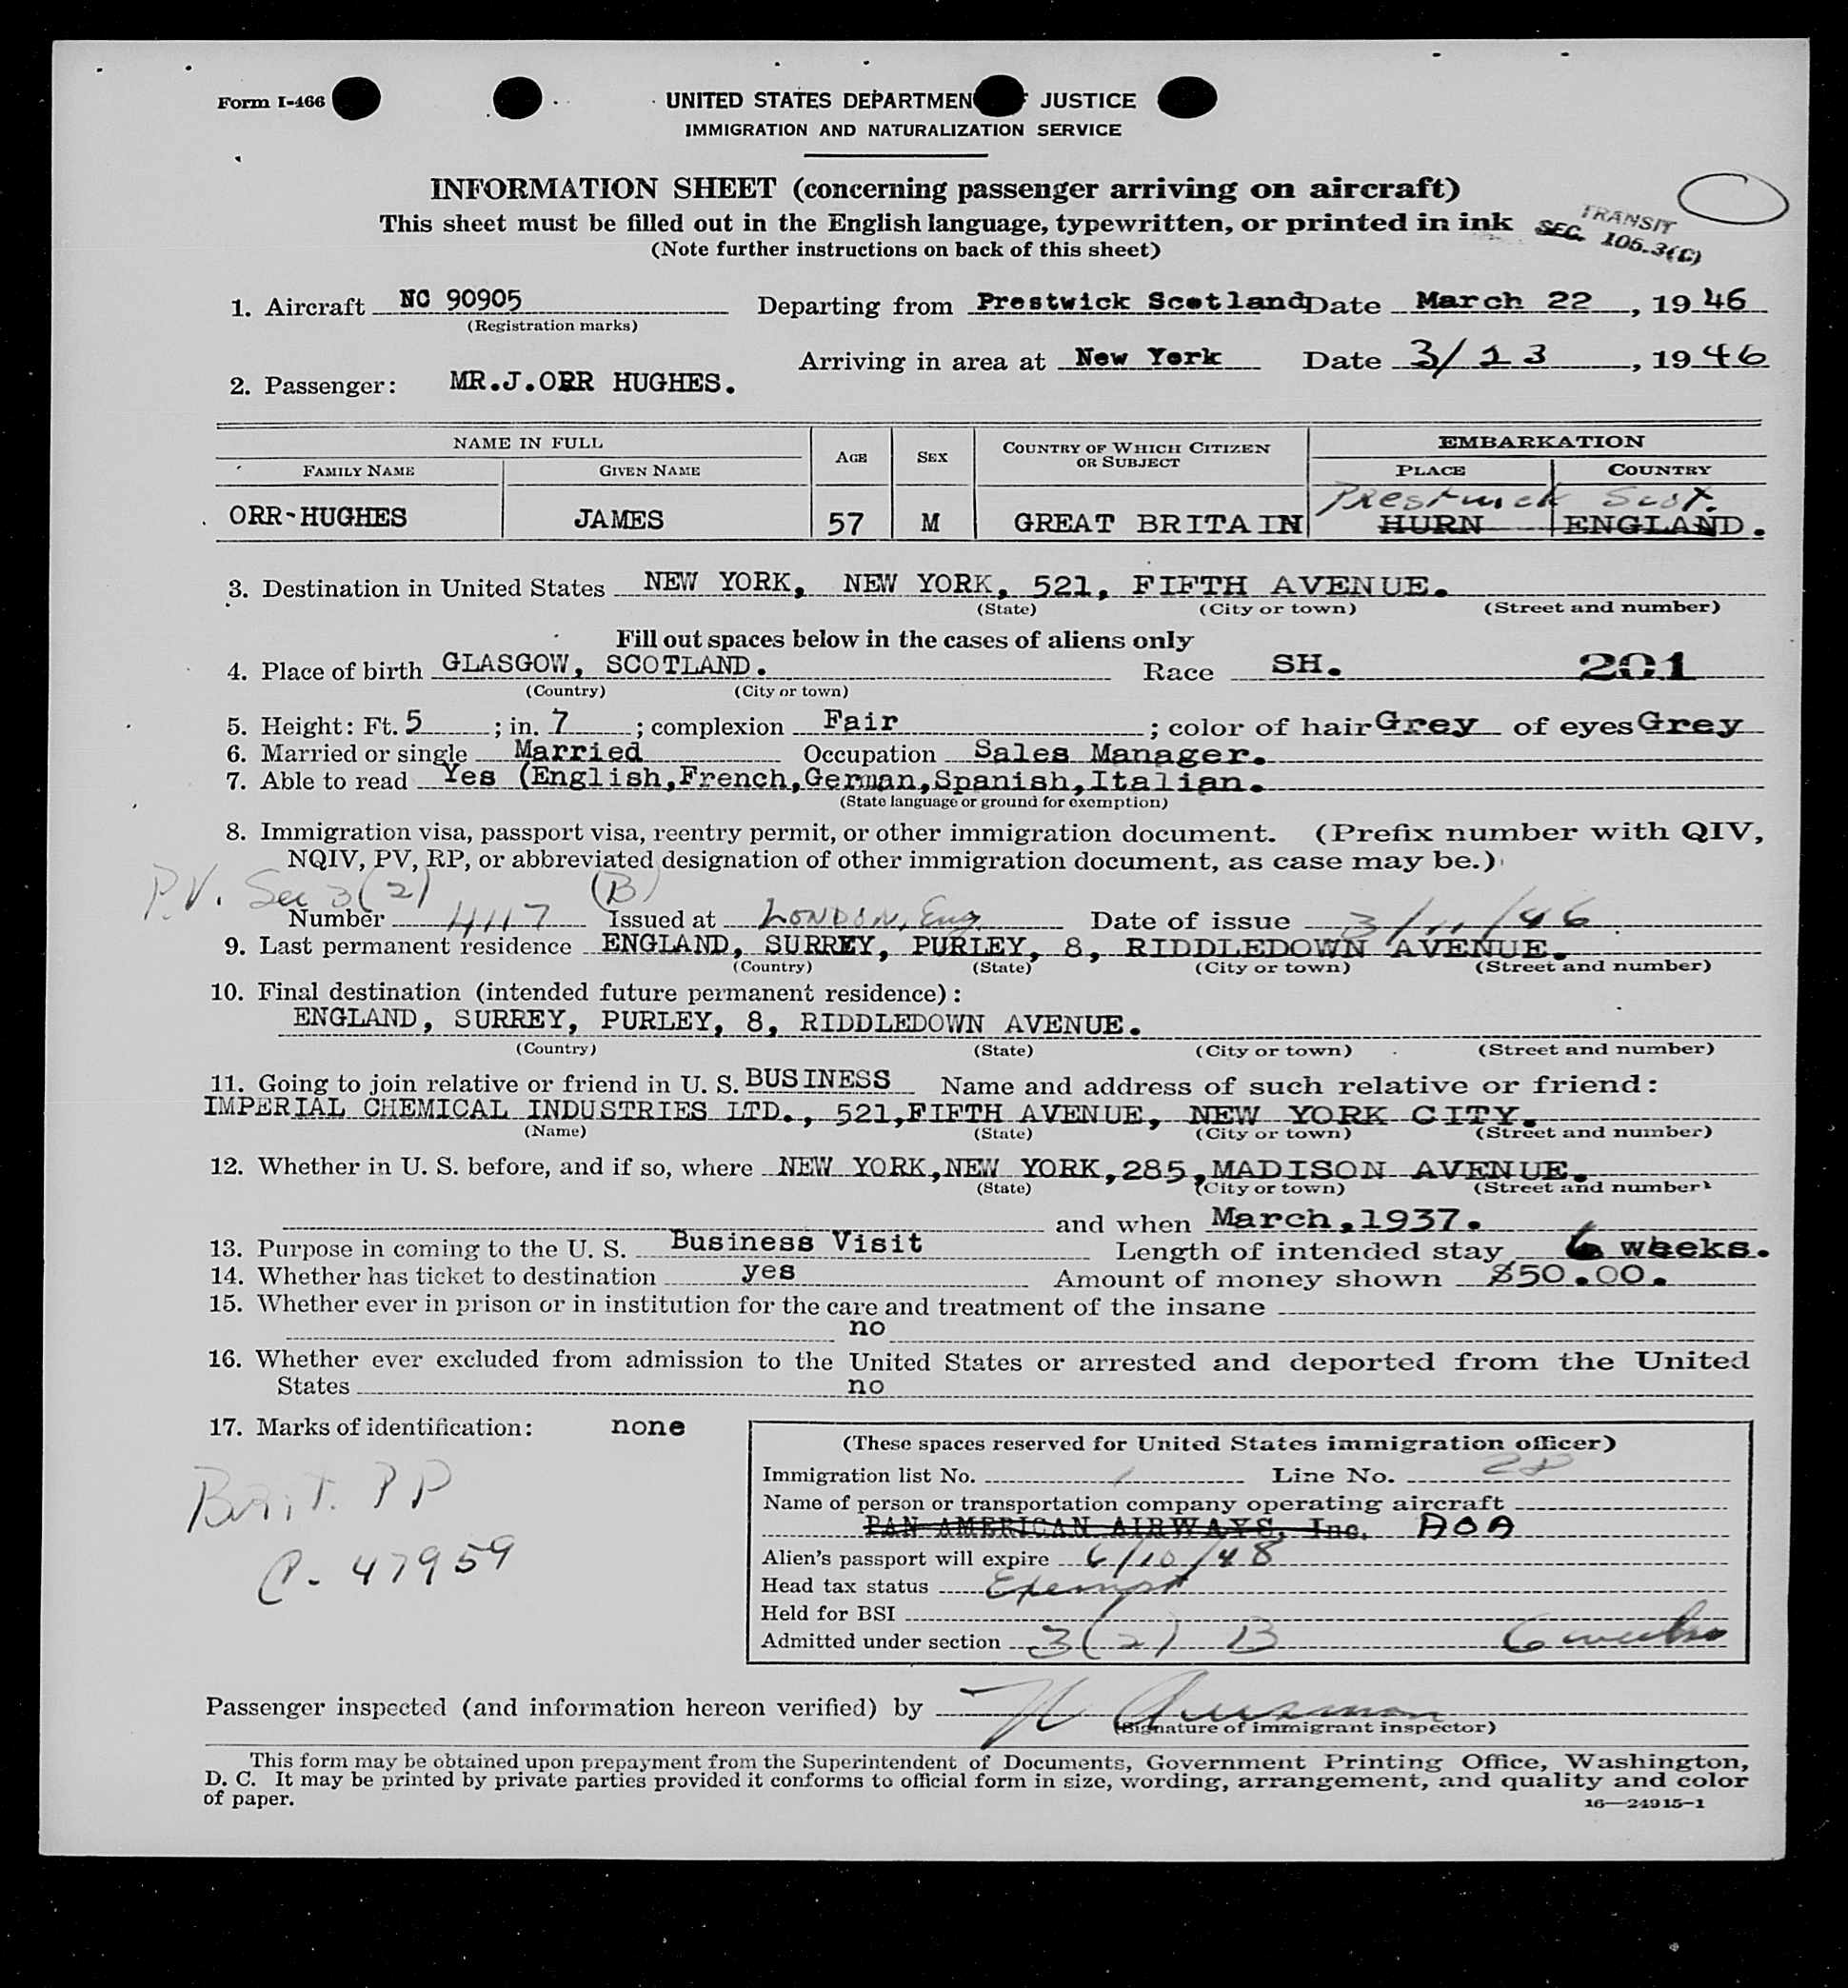 Form I-466
UNITED STATES DEPARTMEN JUSTICE
IMMIGRATION AND NATURALIZATION SERVICE
INFORMATION SHEET (concerning passenger arriving on aircraft)
This sheet must be filled out in the English language, typewritten, or printed in ink
(Note further instructions on back of this sheet)
TRANSIT
SEC. 105.3(C)
1. Aircraft NC 90905 Departing from Prestwick Scotland Date March 22, 1946
(Registration marks)
Arriving in area at New York Date 3/23, 1946
2. Passenger: MR.J.ORR HUGHES.
NAME IN FULL AGE SEX COUNTRY OF WHICH CITIZEN OR SUBJECT EMBARKATION
FAMILY NAME GIVEN NAME PLACE COUNTRY
Prestwick Scot.
ORR-HUGHES JAMES 57 M GREAT BRITAIN HURN ENGLAND.
3. Destination in United States NEW YORK, NEW YORK, 521, FIFTH AVENUE.
(State) (City or town) (Street and number)
Fill out spaces below in the cases of aliens only
4. Place of birth GLASGOW, SCOTLAND. Race SH. 201
(Country) (City or town)
5. Height: Ft. 5; in. 7; complexion Fair; color of hair Grey of eyes Grey
6. Married or single Married Occupation Sales Manager.
7. Able to read Yes (English,French,German,Spanish,Italian.
(State language or ground for exemption)
8. Immigration visa, passport visa, reentry permit, or other immigration document. (Prefix number with QIV,
NQIV, PV, RP, or abbreviated designation of other immigration document, as case may be.)
P.V. Sec 3(2) (B)
Number 4117 Issued at LONDON, Eng. Date of issue 3/11/46
9. Last permanent residence ENGLAND, SURREY, PURLEY, 8, RIDDLEDOWN AVENUE.
(Country) (State) (City or town) (Street and number)
10. Final destination (intended future permanent residence):
ENGLAND, SURREY, PURLEY, 8, RIDDLEDOWN AVENUE.
(Country) (State) (City or town) (Street and number)
11. Going to join relative or friend in U. S. BUSINESS Name and address of such relative or friend:
IMPERIAL CHEMICAL INDUSTRIES LTD., 521,FIFTH AVENUE, NEW YORK CITY.
(Name) (State) (City or town) (Street and number)
12. Whether in U. S. before, and if so, where NEW YORK,NEW YORK,285,MADISON AVENUE.
(State) (City or town) (Street and number)
and when March,1937.
13. Purpose in coming to the U. S. Business Visit Length of intended stay 6 weeks.
14. Whether has ticket to destination yes Amount of money shown $50.00.
15. Whether ever in prison or in institution for the care and treatment of the insane
no
16. Whether ever excluded from admission to the United States or arrested and deported from the United
States no
17. Marks of identification: none
Brit. PP
C-47959
(These spaces reserved for United States immigration officer)
Immigration list No. 1 Line No. 28
Name of person or transportation company operating aircraft
PAN AMERICAN AIRWAYS, Inc. AOA
Alien's passport will expire 6/10/48
Head tax status Exempt
Held for BSI
Admitted under section 3(2) B 6 weeks
Passenger inspected (and information hereon verified) by
(Signature of immigrant inspector)
This form may be obtained upon prepayment from the Superintendent of Documents, Government Printing Office, Washington,
D. C. It may be printed by private parties provided it conforms to official form in size, wording, arrangement, and quality and color
of paper.
16—24915-1